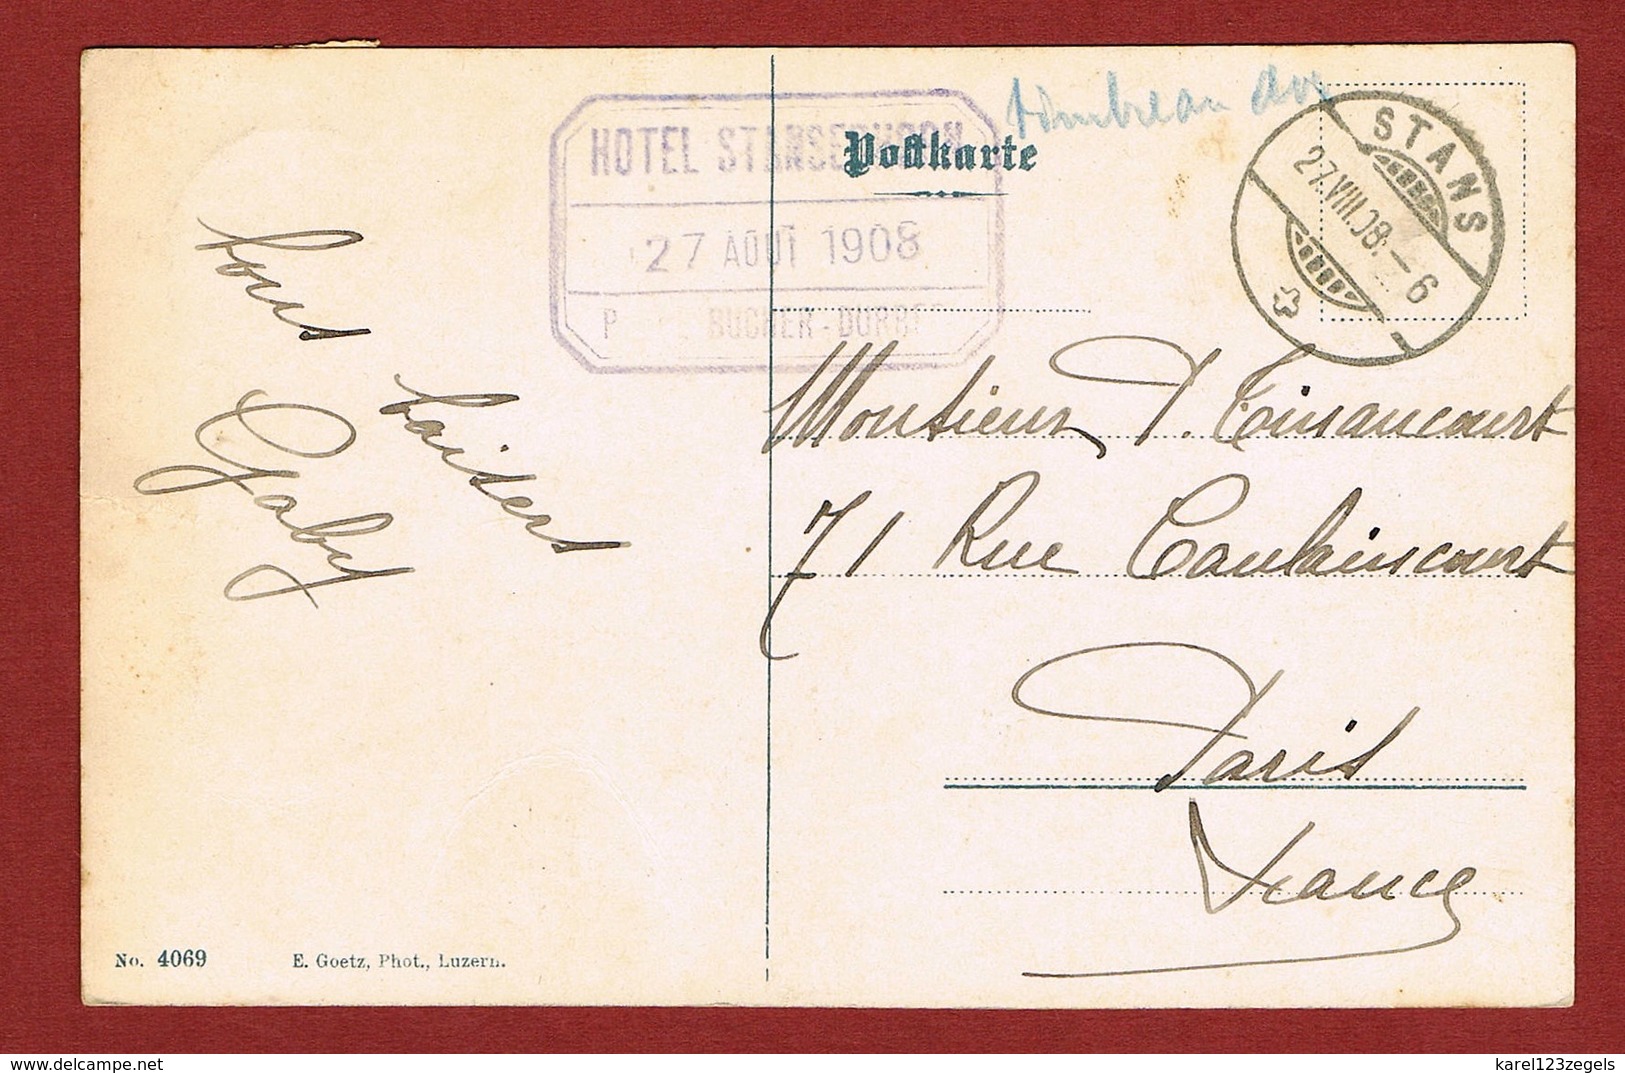 HOTEL STANSERHORN
27 AOUT 1908
P BUCHER-DURRER
Postkarte
timbre au dos
STANS
27.VIII.08.–6
bons
baisers
Gaby
Monsieur P. Tinancourt
71 Rue Caulaincourt
Paris
France
No. 4069
E. Goetz, Phot., Luzern.
delcampe.net
karel123zegels